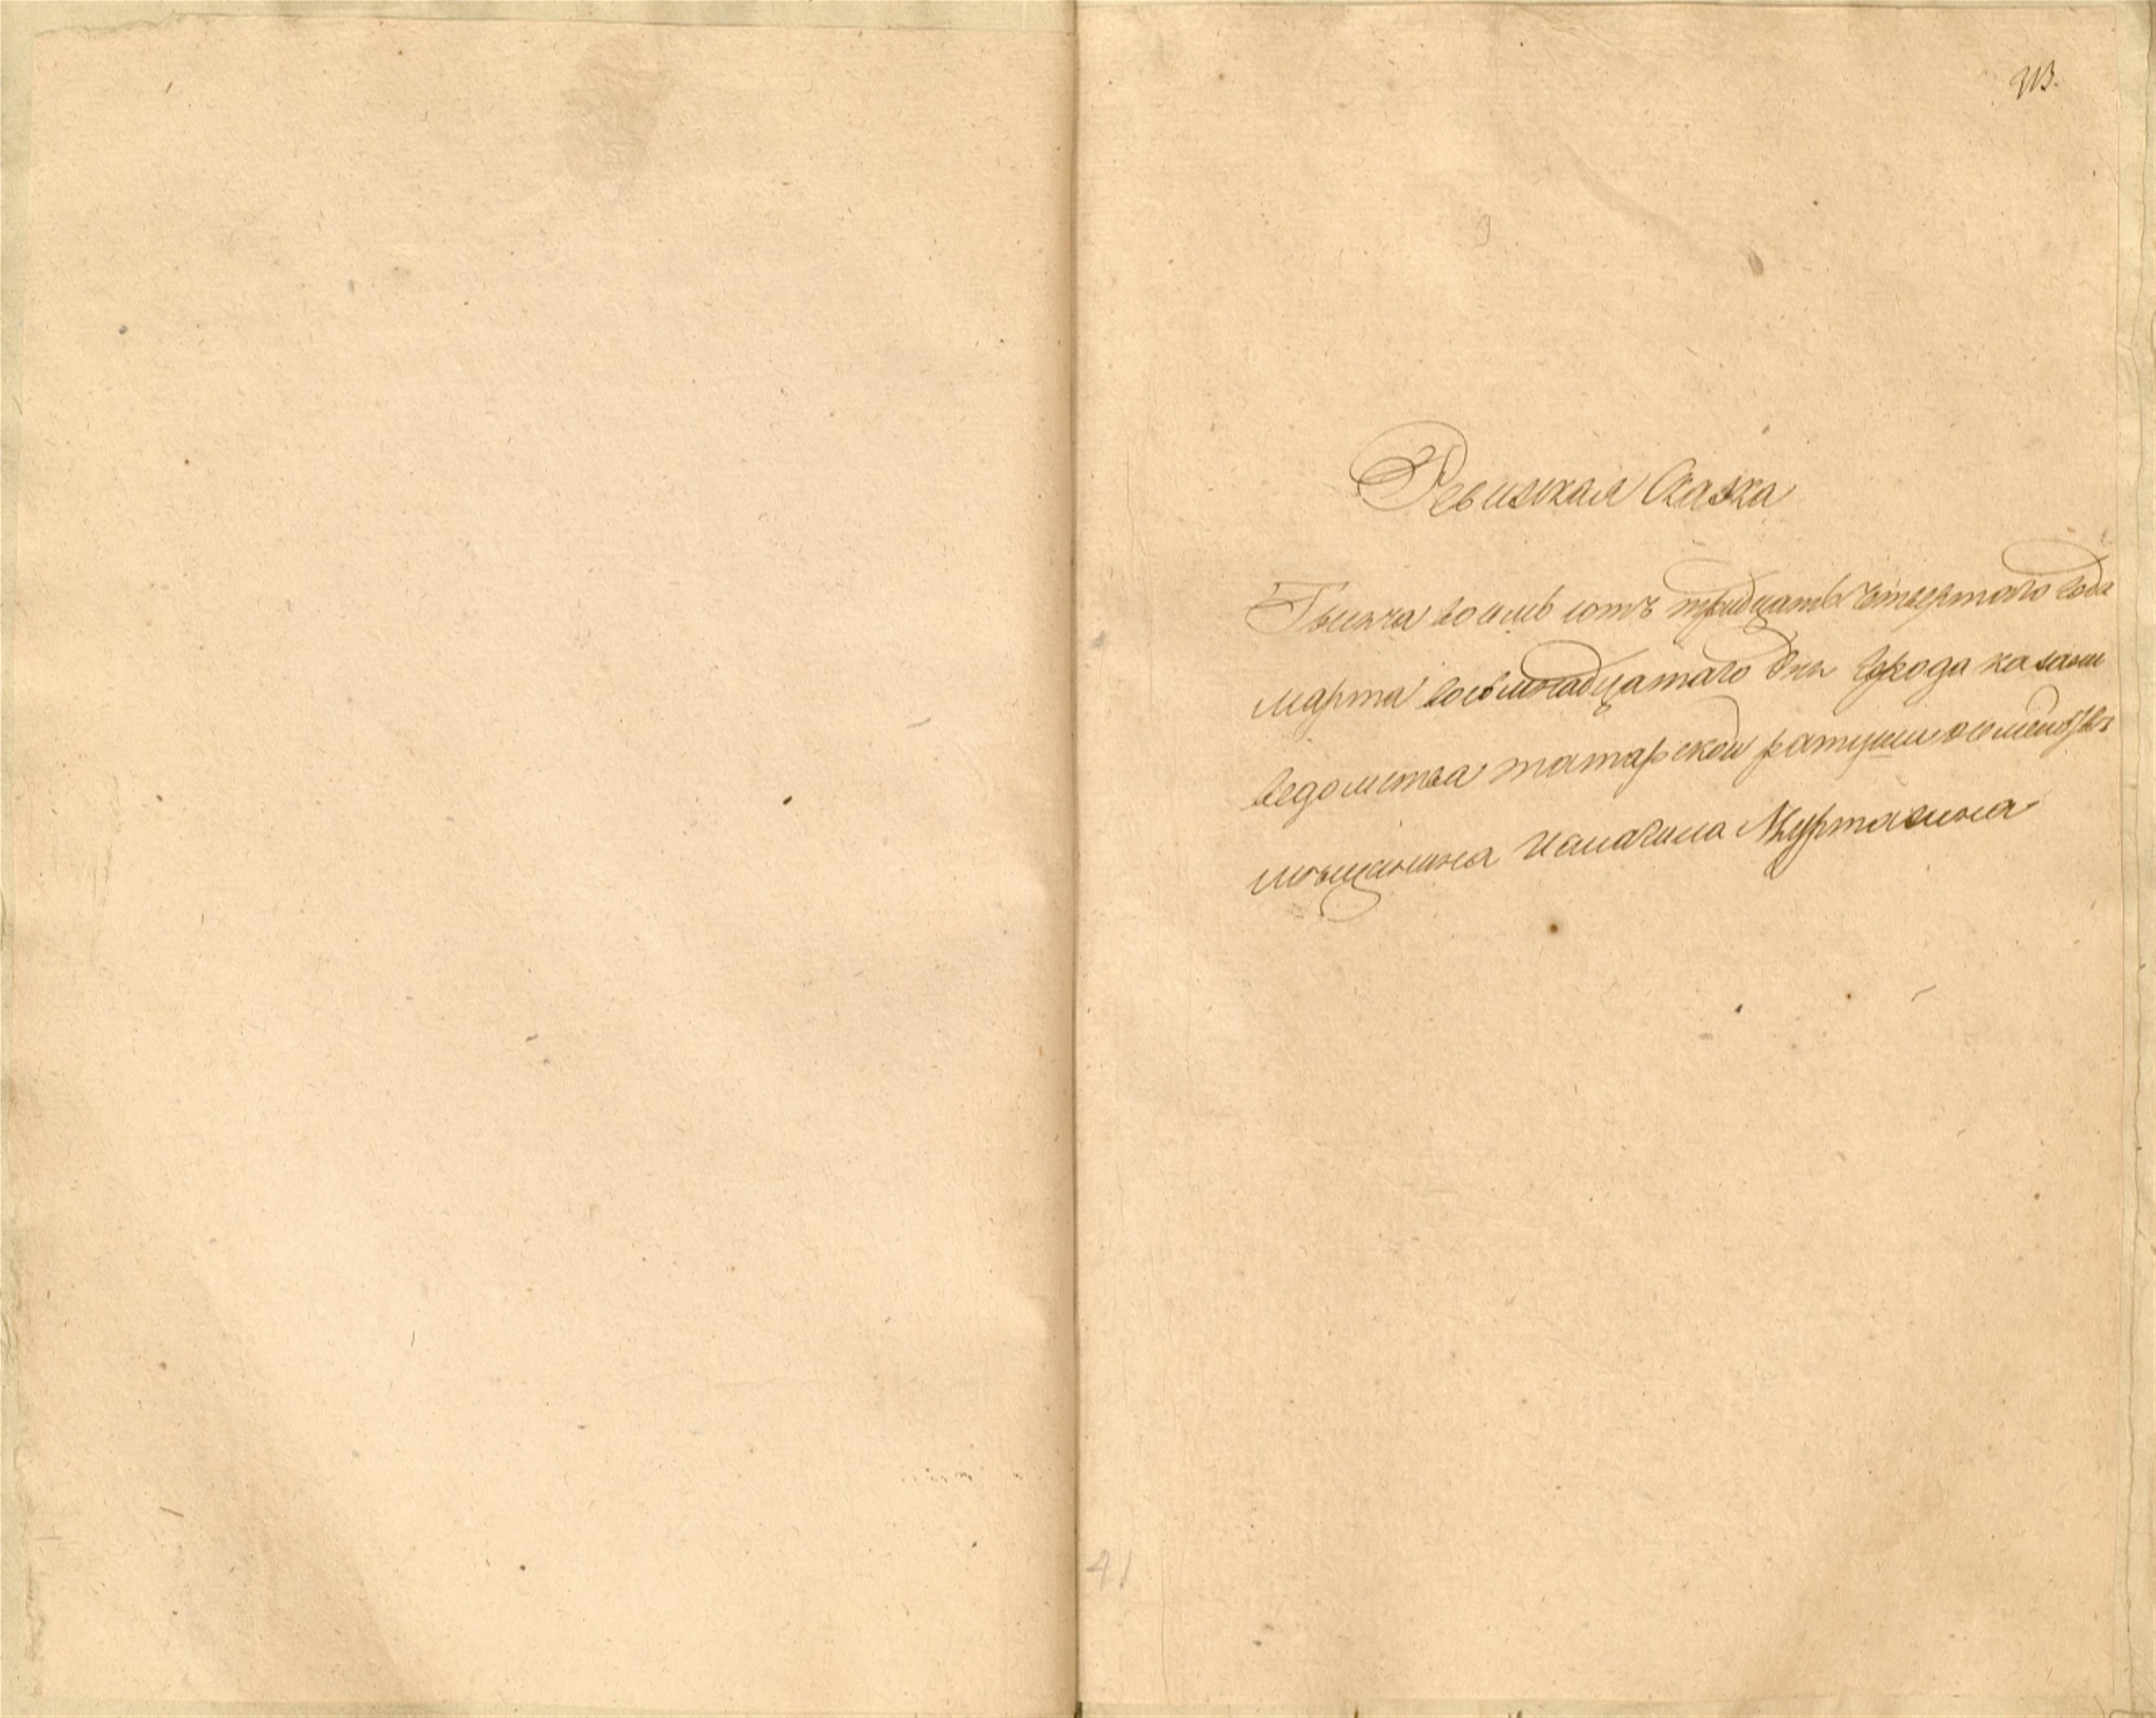 313.
Ревизская Сказка
Тысяча восемь сотъ тридцать четвертого года
марта восемнадцатаго дня города казани
ведомства татарской ратуши о семействе
мещанина Исмагила Муртазина
41